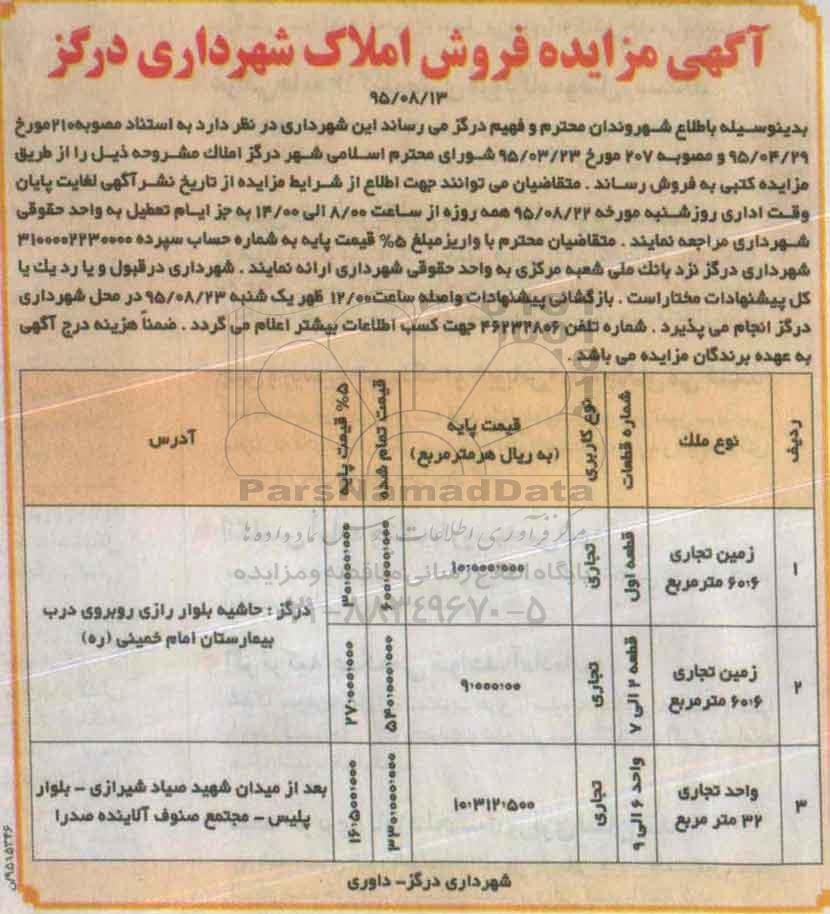 آگهی مزایده فروش املاک شهرداری درگز
۹۵/۰۸/۱۳
بدینوسیله باطلاع شهروندان محترم و فهیم درگز می رساند این شهرداری در نظر دارد به استناد مصوبه ۲۱۰ مورخ
۹۵/۰۴/۲۹ و مصوبه ۲۰۷ مورخ ۹۵/۰۳/۲۳ شورای محترم اسلامی شهر درگز املاک مشروحه ذیل را از طریق
مزایده کتبی به فروش رساند . متقاضیان می توانند جهت اطلاع از شرایط مزایده از تاریخ نشر آگهی لغایت پایان
وقت اداری روز شنبه مورخه ۹۵/۰۸/۲۲ همه روزه از ساعت ۸/۰۰ الی ۱۴/۰۰ به جز ایام تعطیل به واحد حقوقی
شهرداری مراجعه نمایند . متقاضیان محترم با واریز مبلغ ۵% قیمت پایه به شماره حساب سپرده ۳۱۰۰۰۰۲۲۳۰۰۰۰
شهرداری درگز نزد بانک ملی شعبه مرکزی به واحد حقوقی شهرداری ارائه نمایند . شهرداری در قبول و یا رد یک یا
کل پیشنهادات مختار است . بازگشائی پیشنهادات واصله ساعت ۱۲/۰۰ ظهر یک شنبه ۹۵/۰۸/۲۳ در محل شهرداری
درگز انجام می پذیرد . شماره تلفن ۴۶۲۳۲۸۰۶ جهت کسب اطلاعات بیشتر اعلام می گردد . ضمناً هزینه درج آگهی
به عهده برندگان مزایده می باشد .
ردیف نوع ملک شماره قطعات نوع کاربری قیمت پایه (به ریال هر مترمربع) قیمت تمام شده ۵% قیمت پایه آدرس
۱ زمین تجاری ۶۰.۶ مترمربع قطعه اول تجاری ۱۰.۰۰۰.۰۰۰ ۶۰۰.۰۰۰.۰۰۰ ۳۰.۰۰۰.۰۰۰
درگز : حاشیه بلوار رازی روبروی درب
بیمارستان امام خمینی (ره)
۲ زمین تجاری ۶۰.۶ مترمربع قطعه ۲ الی ۷ تجاری ۹.۰۰۰.۰۰ ۵۴۰.۰۰۰.۰۰۰ ۲۷.۰۰۰.۰۰۰
۳ واحد تجاری ۳۲ متر مربع واحد ۶ الی ۹ تجاری ۱۰.۳۱۲.۵۰۰ ۳۳۰.۰۰۰.۰۰۰ ۱۶.۵۰۰.۰۰۰
بعد از میدان شهید صیاد شیرازی – بلوار
پلیس – مجتمع صنوف آلاینده صدرا
شهرداری درگز- داوری
ParsNamadData
پایگاه اطلاع رسانی مناقصه و مزایده
۰۲۱-۸۸۳۴۹۶۷۰-۵